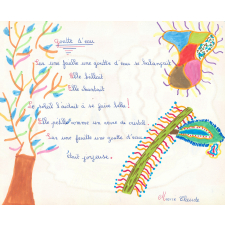 Goutte d'eau
Sur une feuille une goutte d'eau se balançait
Elle brillait
Elle dansait
Le soleil l'aidait à se faire belle !
Elle pétille comme un cœur de cristal.
Sur une feuille une goutte d'eau
Était joyeuse.
Marie Claude